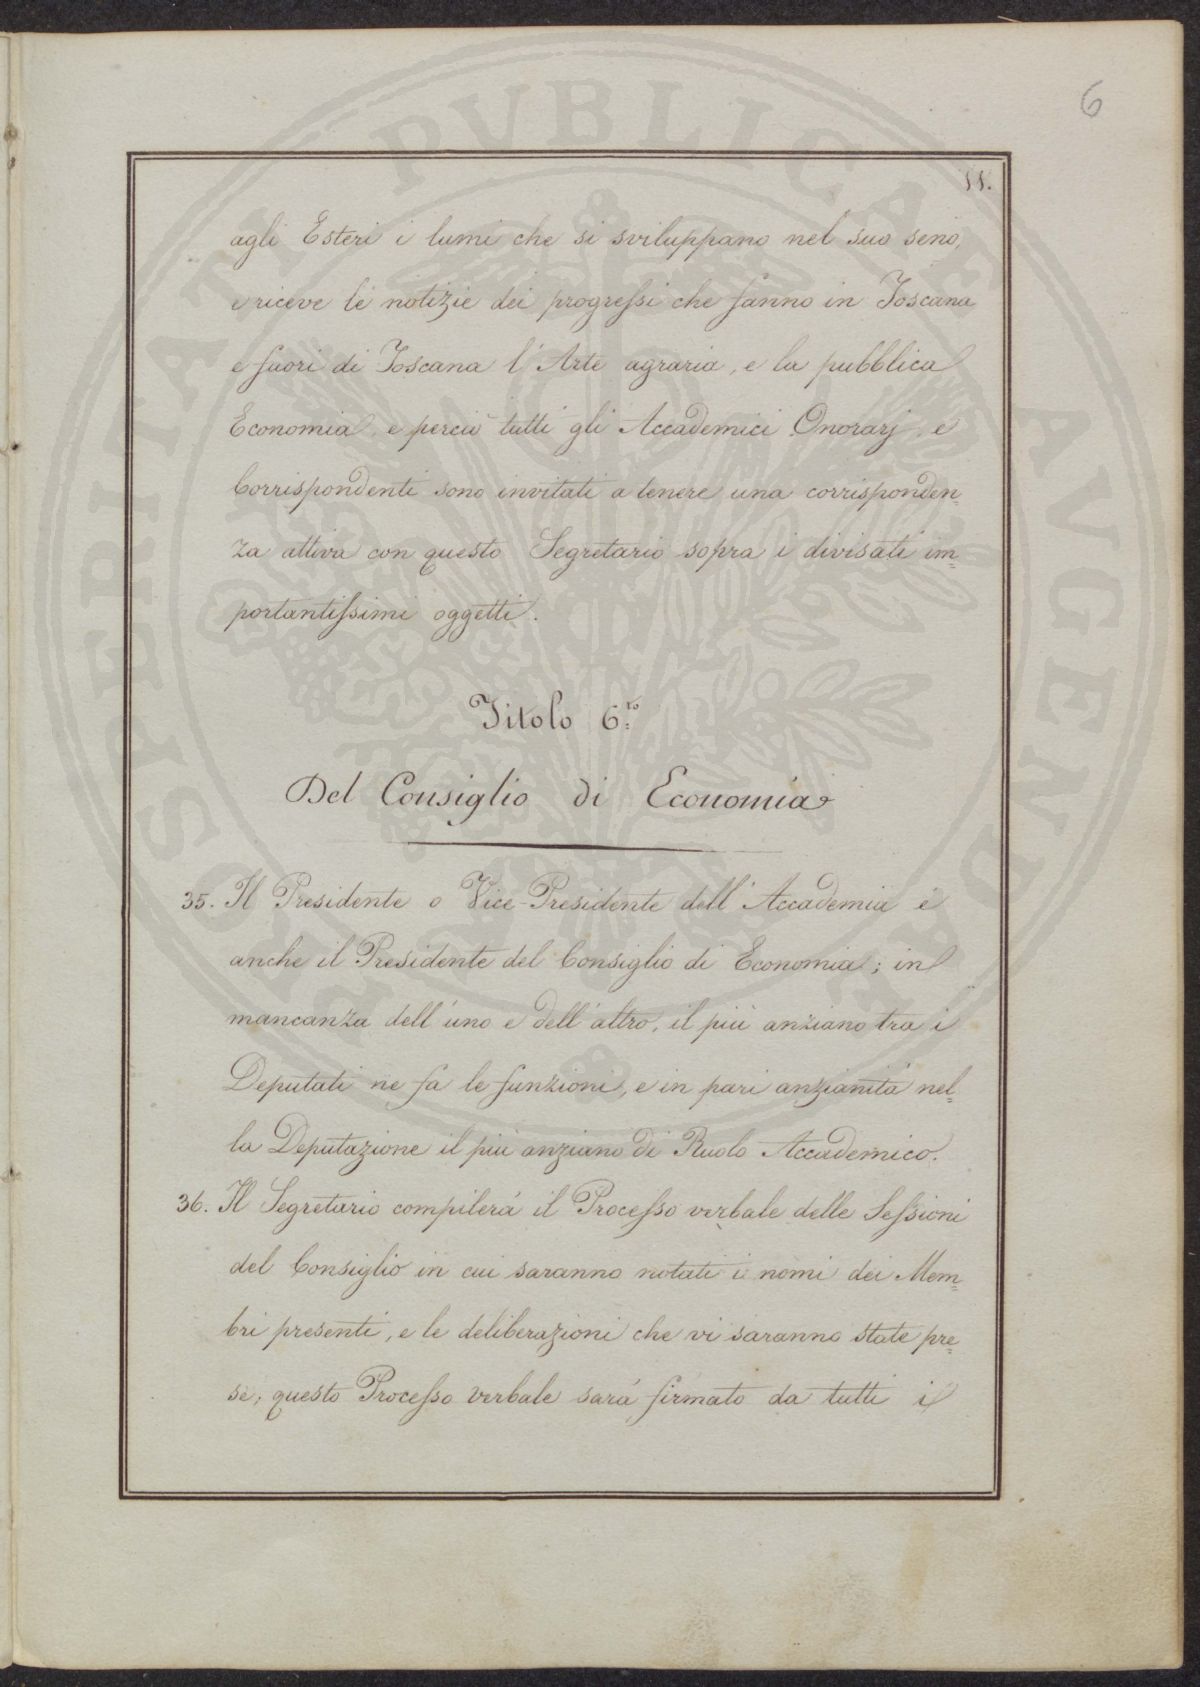 6
11.
agli Esteri i lumi che si sviluppano nel suo seno,
e riceve le notizie dei progressi che fanno in Toscana
e fuori di Toscana l'Arte agraria, e la pubblica
Economia, e perciò tutti gli Accademici Onorarj, e
Corrispondenti sono invitati a tenere una corrisponden=
za attiva con questo Segretario sopra i divisati im=
portantissimi oggetti.
Titolo 6.to
Del Consiglio di Economia
35. Il Presidente o Vice-Presidente dell'Accademia é
anche il Presidente del Consiglio di Economia; in
mancanza dell'uno e dell'altro, il più anziano tra i
Deputati ne fa le funzioni, e in pari anzianitá nel=
la Deputazione il più anziano di Ruolo Accademico.
36. Il Segretario compilerá il Processo verbale delle Sessioni
del Consiglio in cui saranno notati i nomi dei Mem=
bri presenti, e le deliberazioni che vi saranno state pre=
se; questo Processo verbale sará firmato da tutti i
PROSPERITATI PVBLICAE AVGENDAE